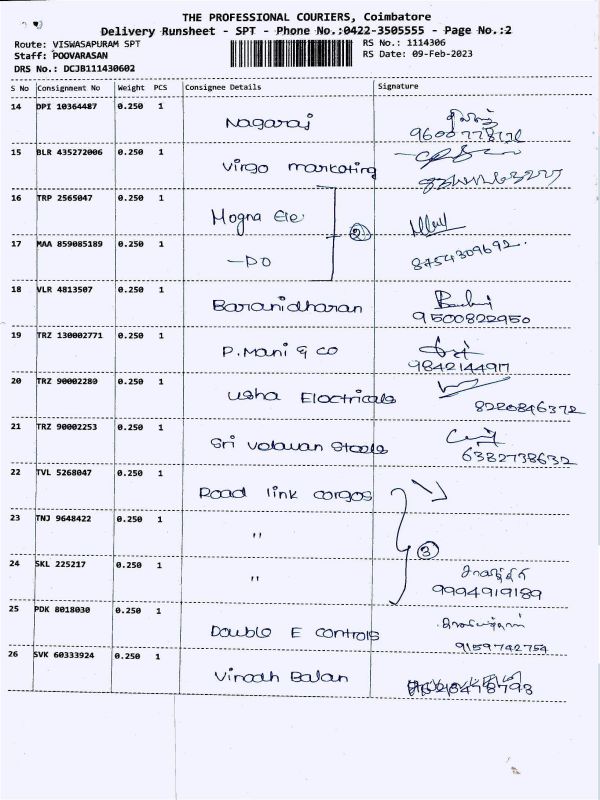 THE PROFESSIONAL COURIERS, Coimbatore
Delivery Runsheet - SPT - Phone No.:0422-3505555 - Page No.:2
Route: VISWASAPURAM SPT RS No.: 1114306
Staff: POOVARASAN RS Date: 09-Feb-2023
DRS No.: DCJB111430602
S No Consignment No Weight PCS Consignee Details Signature
14 DPI 10364487 0.250 1 Nagaraj
15 BLR 435272006 0.250 1 Virgo marketing
16 TRP 2565047 0.250 1 Mogna Ele
②
17 MAA 859085189 0.250 1 -DO 8754309692
18 VLR 4813507 0.250 1 Baranidharan
9500822950
19 TRZ 130002771 0.250 1 P.Mani & co
9842144917
20 TRZ 90002280 0.250 1 Usha Electricals
8220846372
21 TRZ 90002253 0.250 1 Sri Velavan Steels
6382738632
22 TVL 5268047 0.250 1 Road link cargos
23 TNJ 9648422 0.250 1 "
③
24 SKL 225217 0.250 1 "
9994919189
25 PDK 8018030 0.250 1 Double E controls
9159742754
26 SVK 60333924 0.250 1 Vinoth Balan